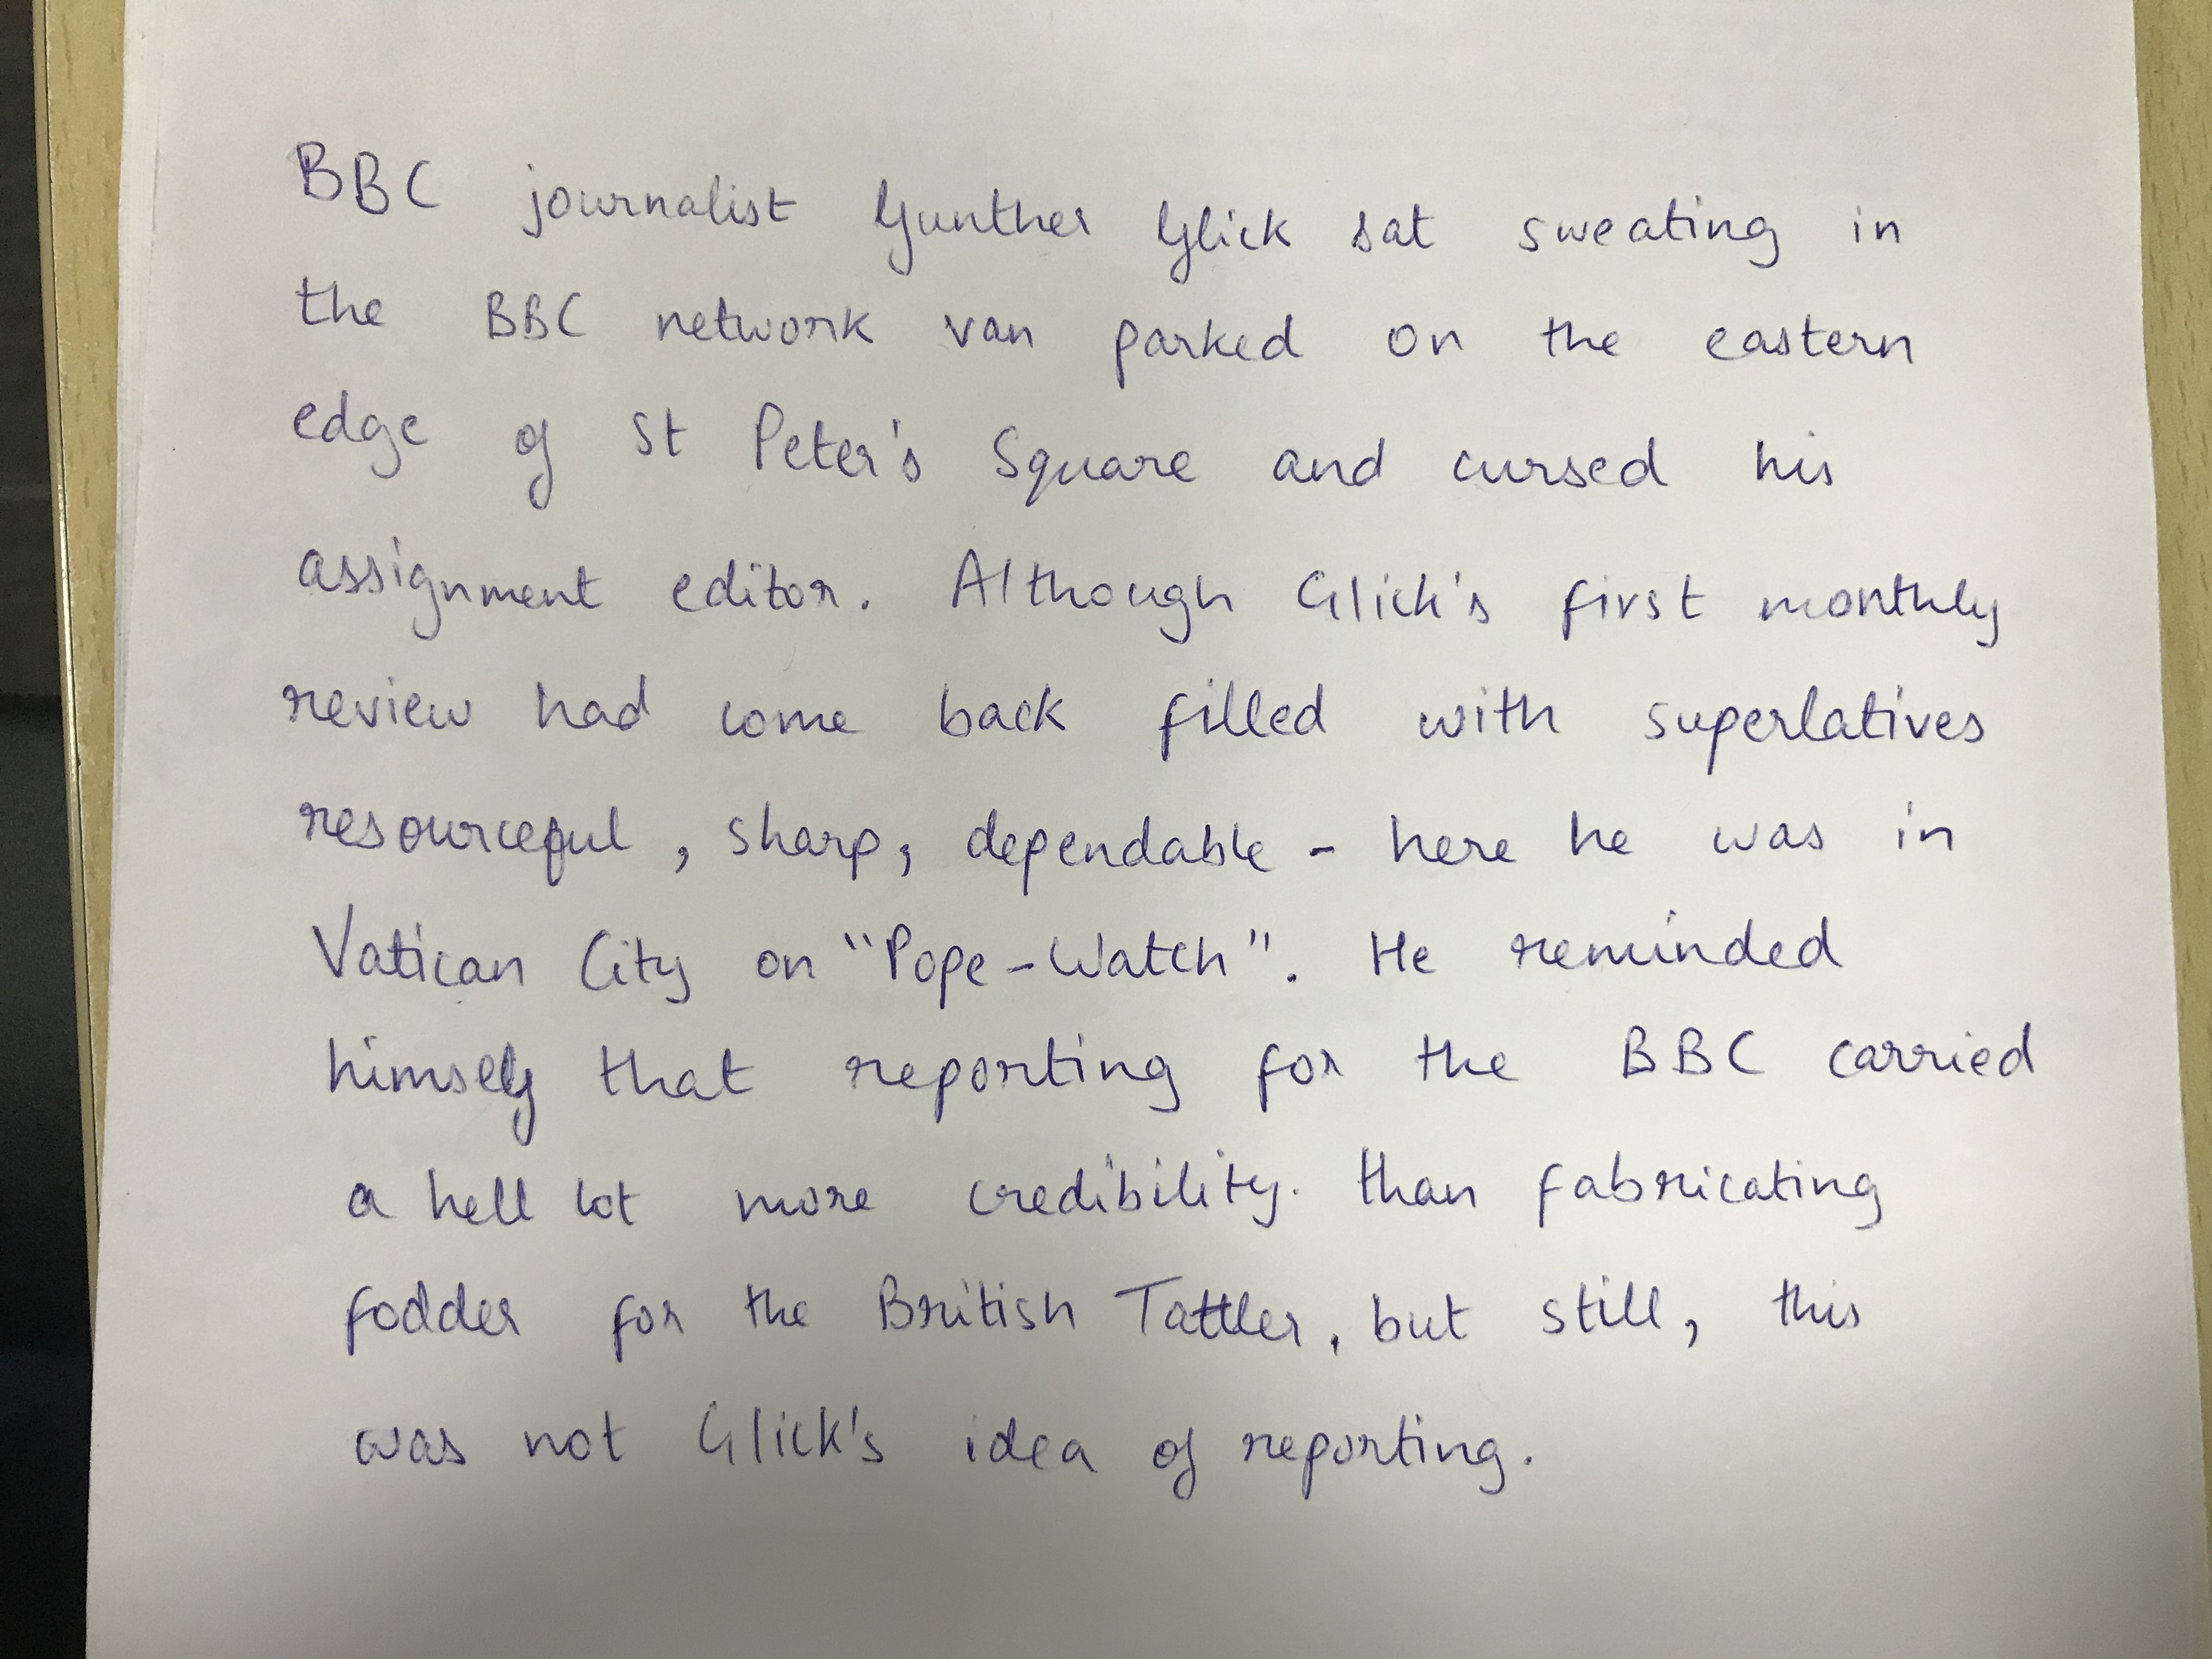 BBC journalist Gunther Glick sat sweating in
the BBC network van parked on the eastern
edge of St Peter's Square and cursed his
assignment editor. Although Glick's first monthly
review had come back filled with superlatives
resourceful, sharp, dependable - here he was in
Vatican City on "Pope-Watch". He reminded
himself that reporting for the BBC carried
a hell lot more credibility. than fabricating
fodder for the British Tattler, but still, this
was not Glick's idea of reporting.